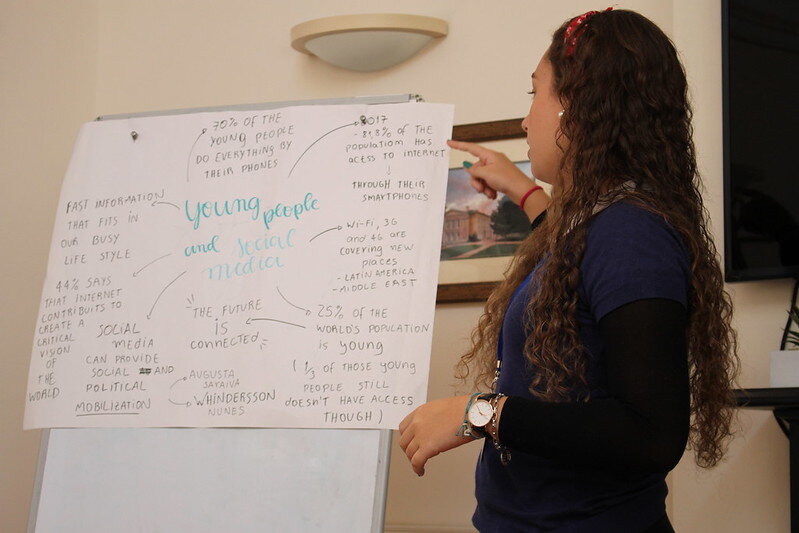 70% OF THE
YOUNG PEOPLE
DO EVERYTHING BY
THEIR PHONES
2017
- 81,8% OF THE
POPULATION HAS
ACESS TO INTERNET
THROUGH THEIR
SMARTPHONES
FAST INFORMATION
THAT FITS IN
OUR BUSY
LIFE STYLE
Young people
and social
media
WI-FI, 3G
AND 4G ARE
COVERING NEW
PLACES
- LATIN AMERICA
- MIDDLE EAST
44% SAYS
THAT INTERNET
CONTRIBUITS TO
CREATE A
CRITICAL
VISION
OF
THE
WORLD
SOCIAL
MEDIA
CAN PROVIDE
SOCIAL AND
POLITICAL
MOBILIZATION
"THE FUTURE
IS
CONNECTED"
AUGUSTA
SARAIVA
WHINDERSSON
NUNES
25% OF THE
WORLD'S POPULATION
IS YOUNG
( 1/3 OF THOSE YOUNG
PEOPLE STILL
DOESN'T HAVE ACCESS
THOUGH )